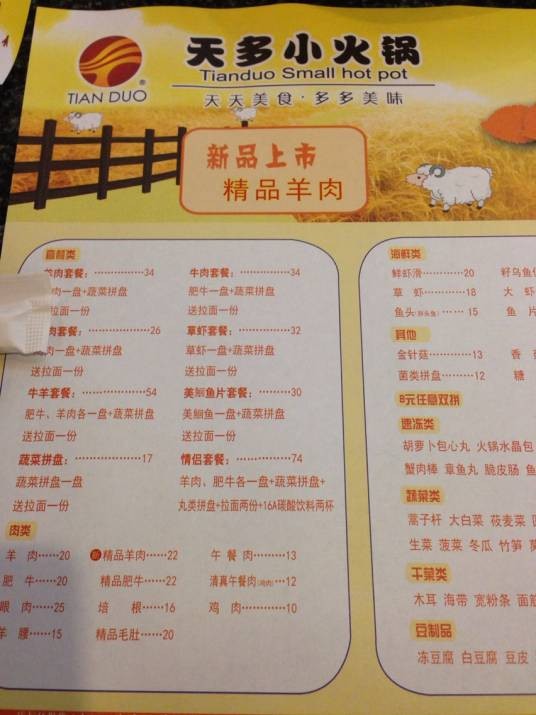 天多小火锅
Tianduo Small hot pot
TIAN DUO ®
天天美食·多多美味
新品上市
精品羊肉
套餐类
羊肉套餐：……………34 牛肉套餐：……………34
肉一盘+蔬菜拼盘 肥牛一盘+蔬菜拼盘
送拉面一份 送拉面一份
肉套餐：……………26 草虾套餐：……………32
肉一盘+蔬菜拼盘 草虾一盘+蔬菜拼盘
送拉面一份 送拉面一份
牛羊套餐：……………54 美鮰鱼片套餐：………30
肥牛、羊肉各一盘+蔬菜拼盘 美鮰鱼一盘+蔬菜拼盘
送拉面一份 送拉面一份
蔬菜拼盘：……………17 情侣套餐：……………74
蔬菜拼盘一盘 羊肉、肥牛各一盘+蔬菜拼盘+
送拉面一份 丸类拼盘+拉面两份+16A碳酸饮料两杯
肉类
羊 肉……20 新 精品羊肉……22 午 餐 肉………13
肥 牛……20 精品肥牛……22 清真午餐肉(鸡肉)…12
眼 肉……25 培 根……16 鸡 肉…………10
羊 腰……15 精品毛肚……20
海鲜类
鲜虾滑…………20 籽乌鱼
草 虾…………18 大 虾
鱼头(胖头鱼)……15 鱼 片
其他
金针菇…………13 香
菌类拼盘………12 糖
8元任意双拼
速冻类
胡萝卜包心丸 火锅水晶包
蟹肉棒 章鱼丸 脆皮肠 鱼
蔬菜类
蒿子杆 大白菜 莜麦菜
生菜 菠菜 冬瓜 竹笋
干菜类
木耳 海带 宽粉条 面筋
豆制品
冻豆腐 白豆腐 豆皮